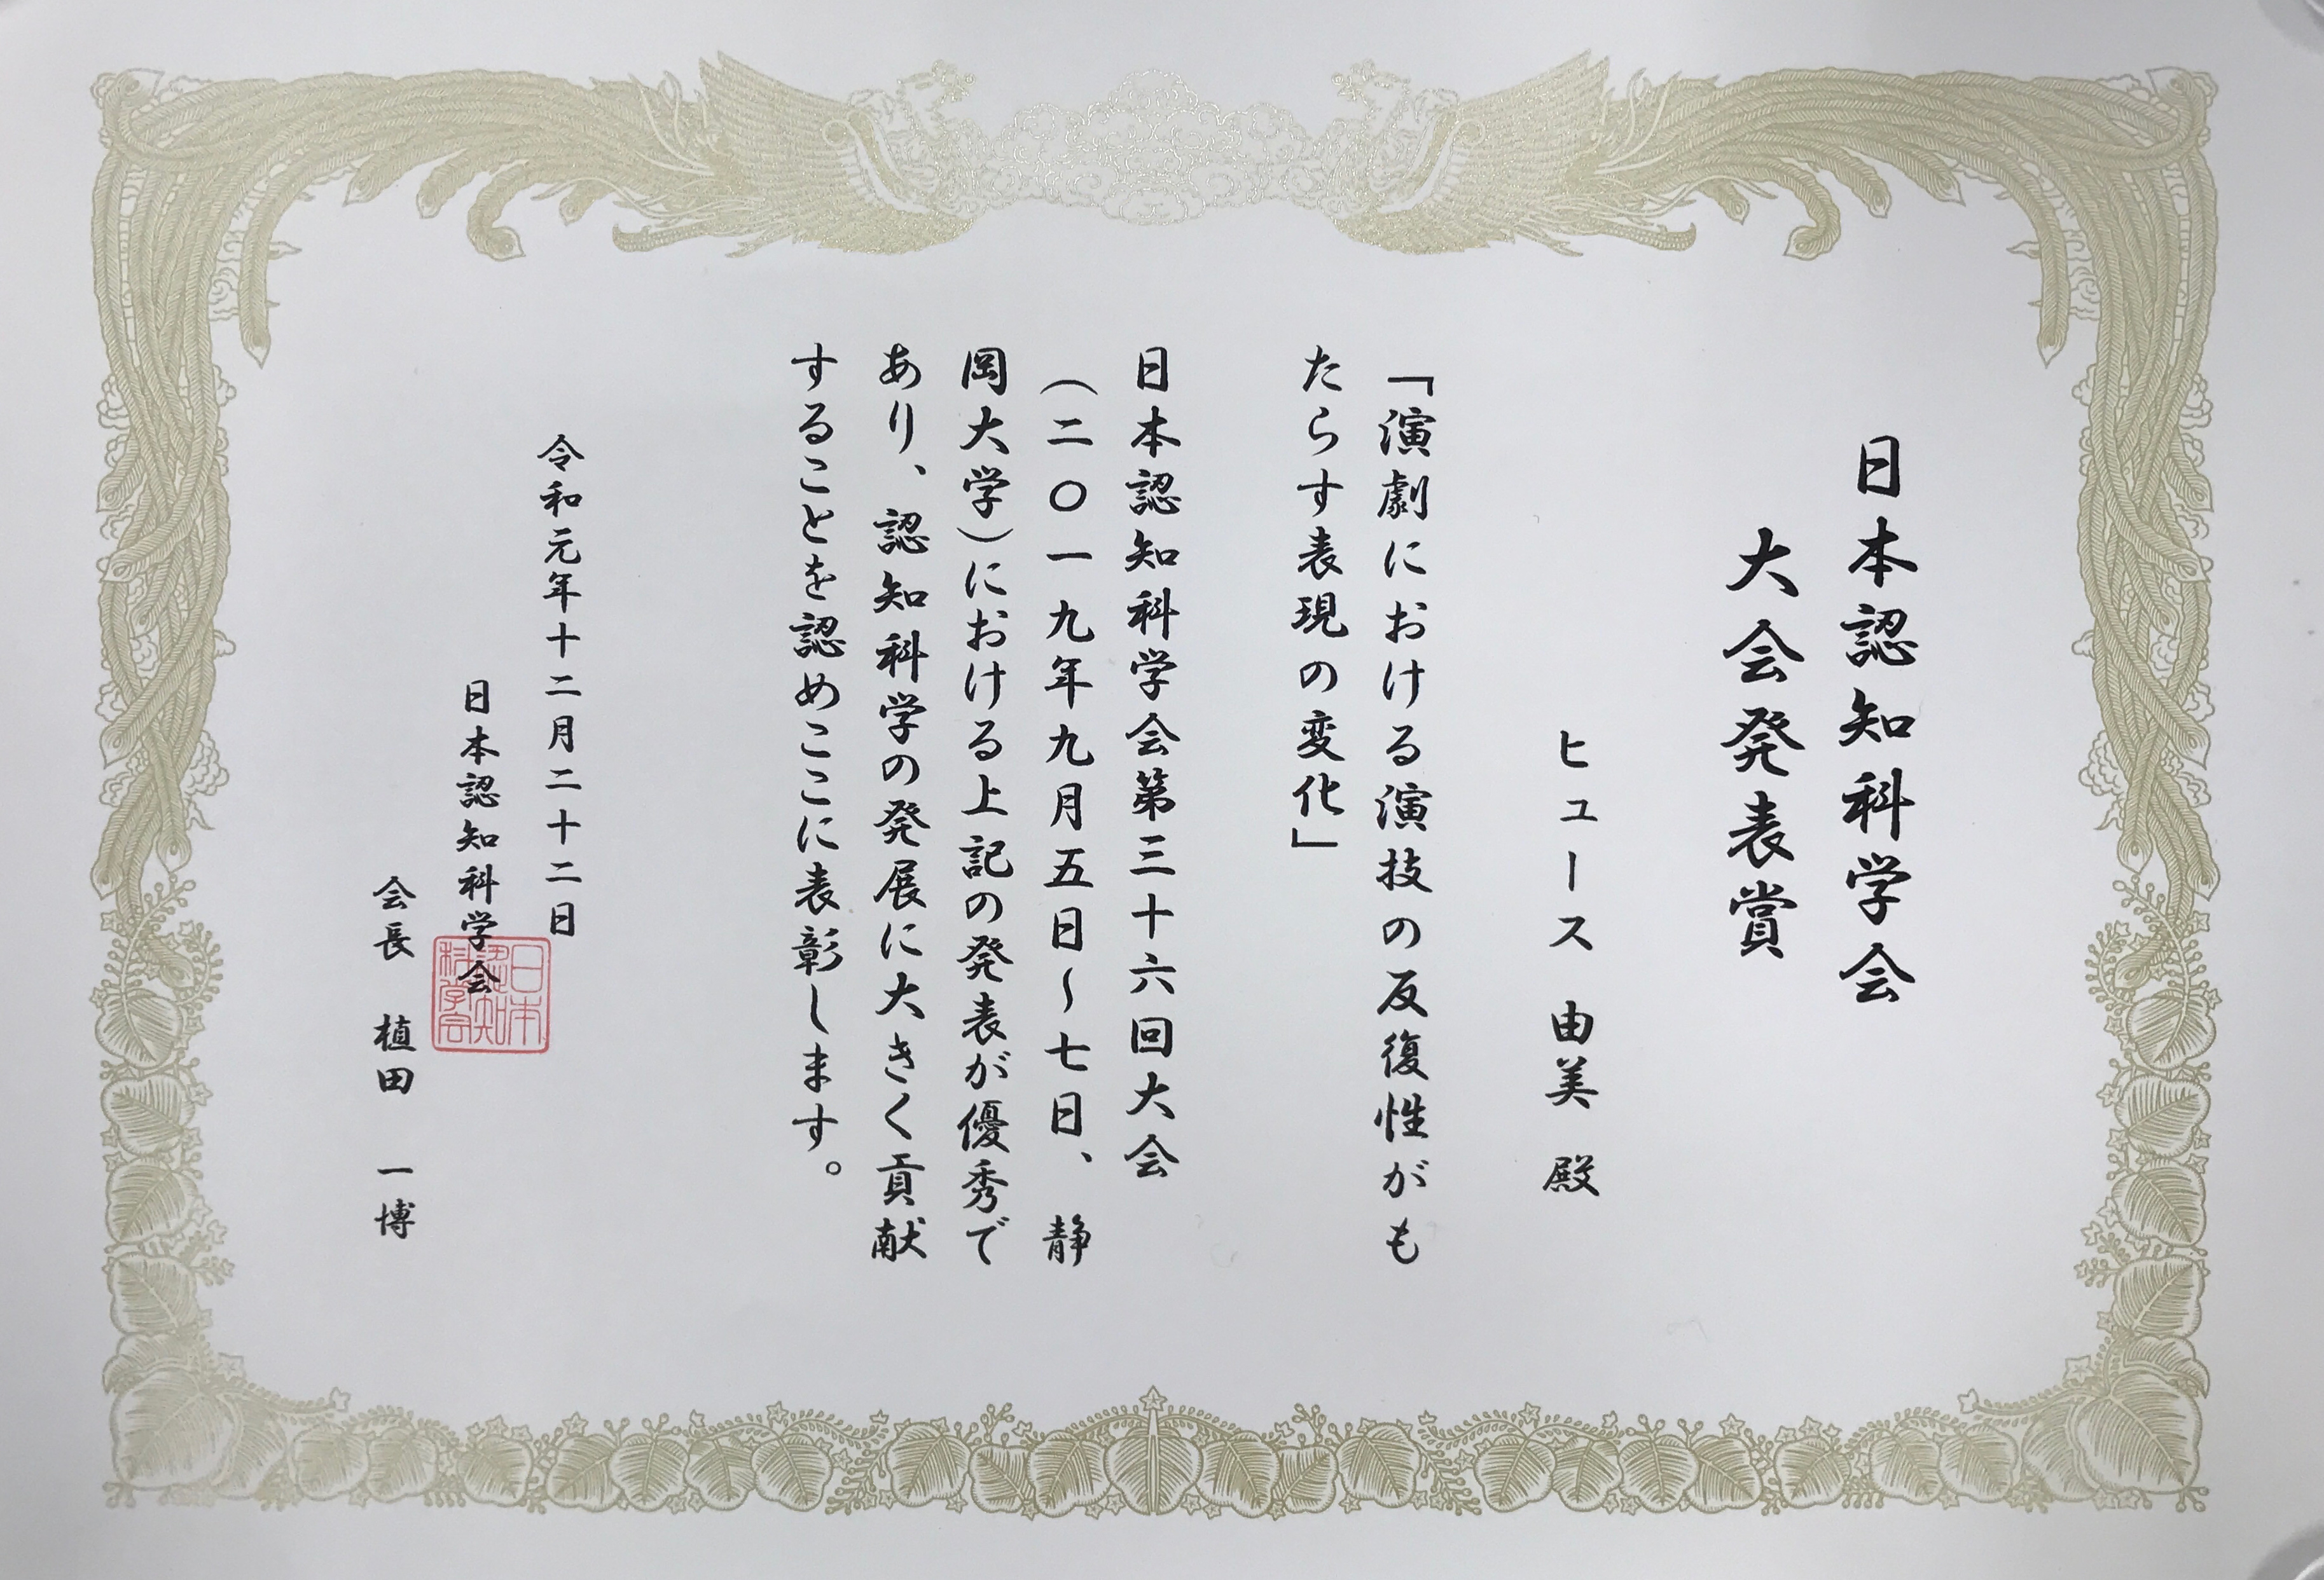 日本認知科学会
大会発表賞
ヒュース 由美 殿
「演劇における演技の反復性がも
たらす表現の変化」
日本認知科学会第三十六回大会
(二〇一九年九月五日～七日、静
岡大学)における上記の発表が優秀で
あり、認知科学の発展に大きく貢献
することを認めここに表彰します。
令和元年十二月二十二日
日本認知科学会
会長 植田 一博
日本
認知
科学会